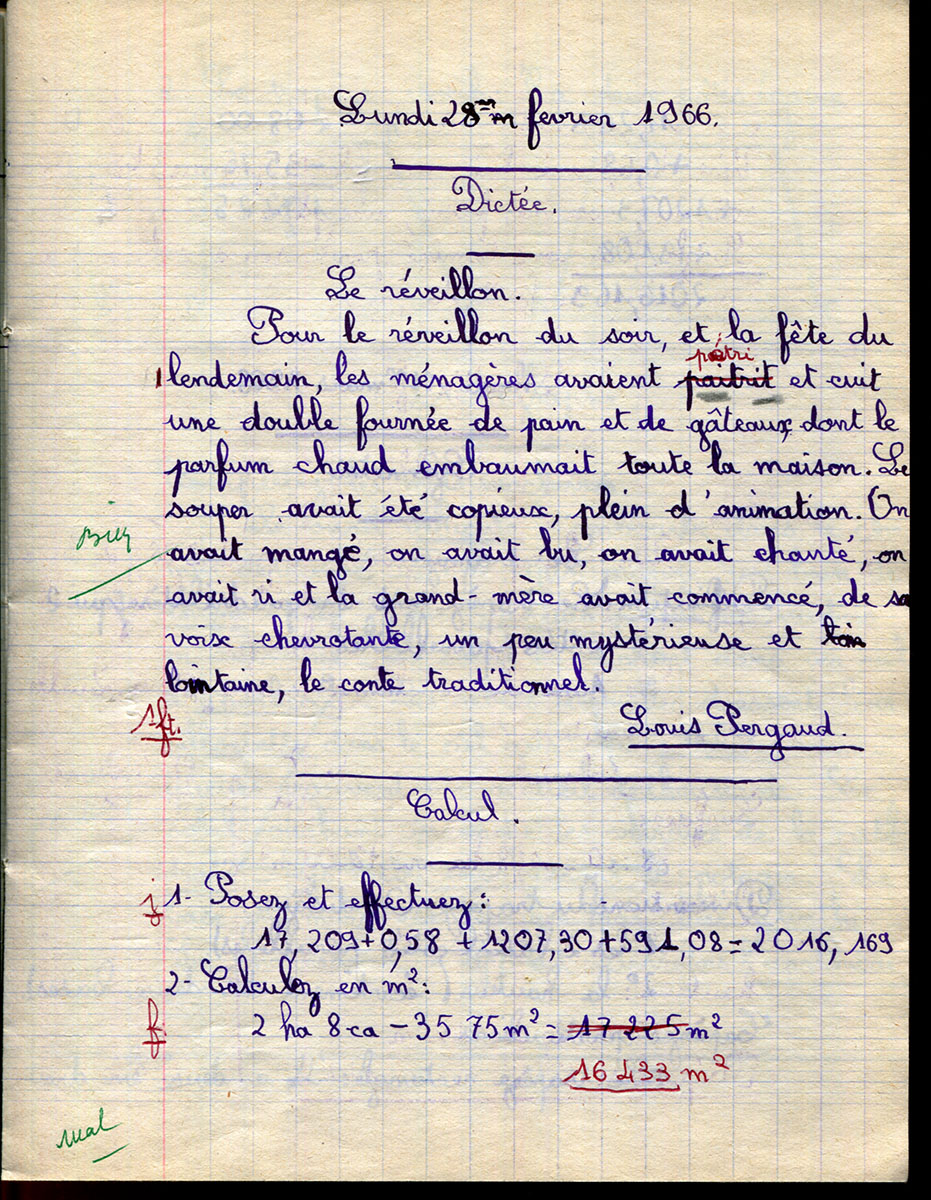 Lundi 28 fevrier 1966.
Dictée.
Le réveillon.
Pour le réveillon du soir, et la fête du
pétri
lendemain, les ménagères avaient paitrit et cuit
une double fournée de pain et de gâteaux, dont le
parfum chaud embaumait toute la maison. Le
souper avait été copieux, plein d'animation. On
Bien
avait mangé, on avait bu, on avait chanté, on
avait ri et la grand-mère avait commencé, de sa
voix chevrotante, un peu mystérieuse et loin
lointaine, le conte traditionnel.
1 ft.
Louis Pergaud.
Calcul.
j 1- Posez et effectuez :
17,209+0,58+1207,30+591,08=2016,169
2- Calculez en m² :
f 2 ha 8 ca - 35 75 m² = 17 225 m²
16 433 m²
mal